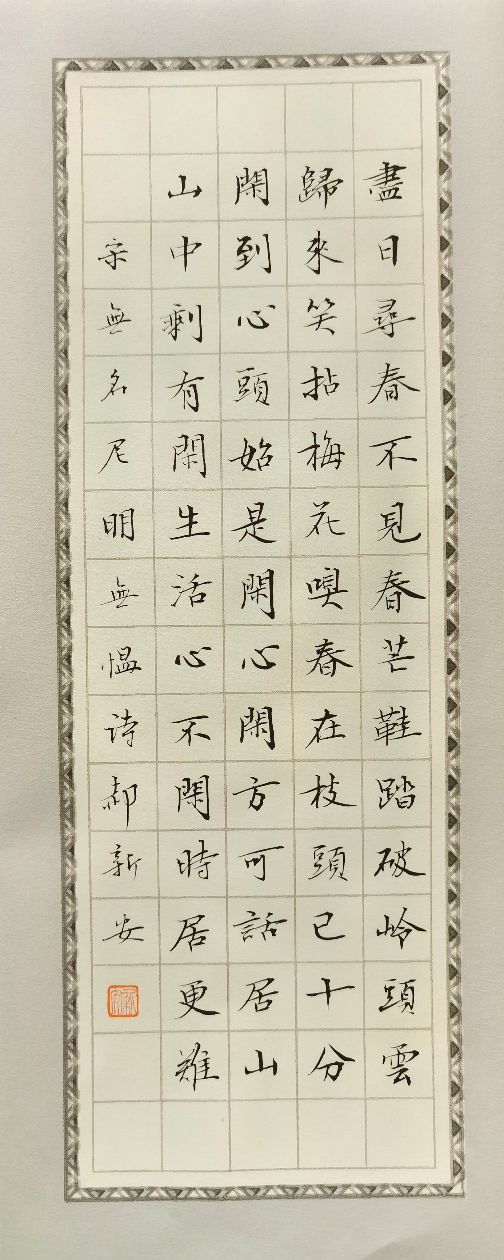 盡日尋春不見春芒鞋踏破岭頭雲
歸來笑拈梅花嗅春在枝頭已十分
閑到心頭始是閑心閑方可話居山
山中剩有閑生活心不閑時居更難
宋無名尼明無愠诗郝新安